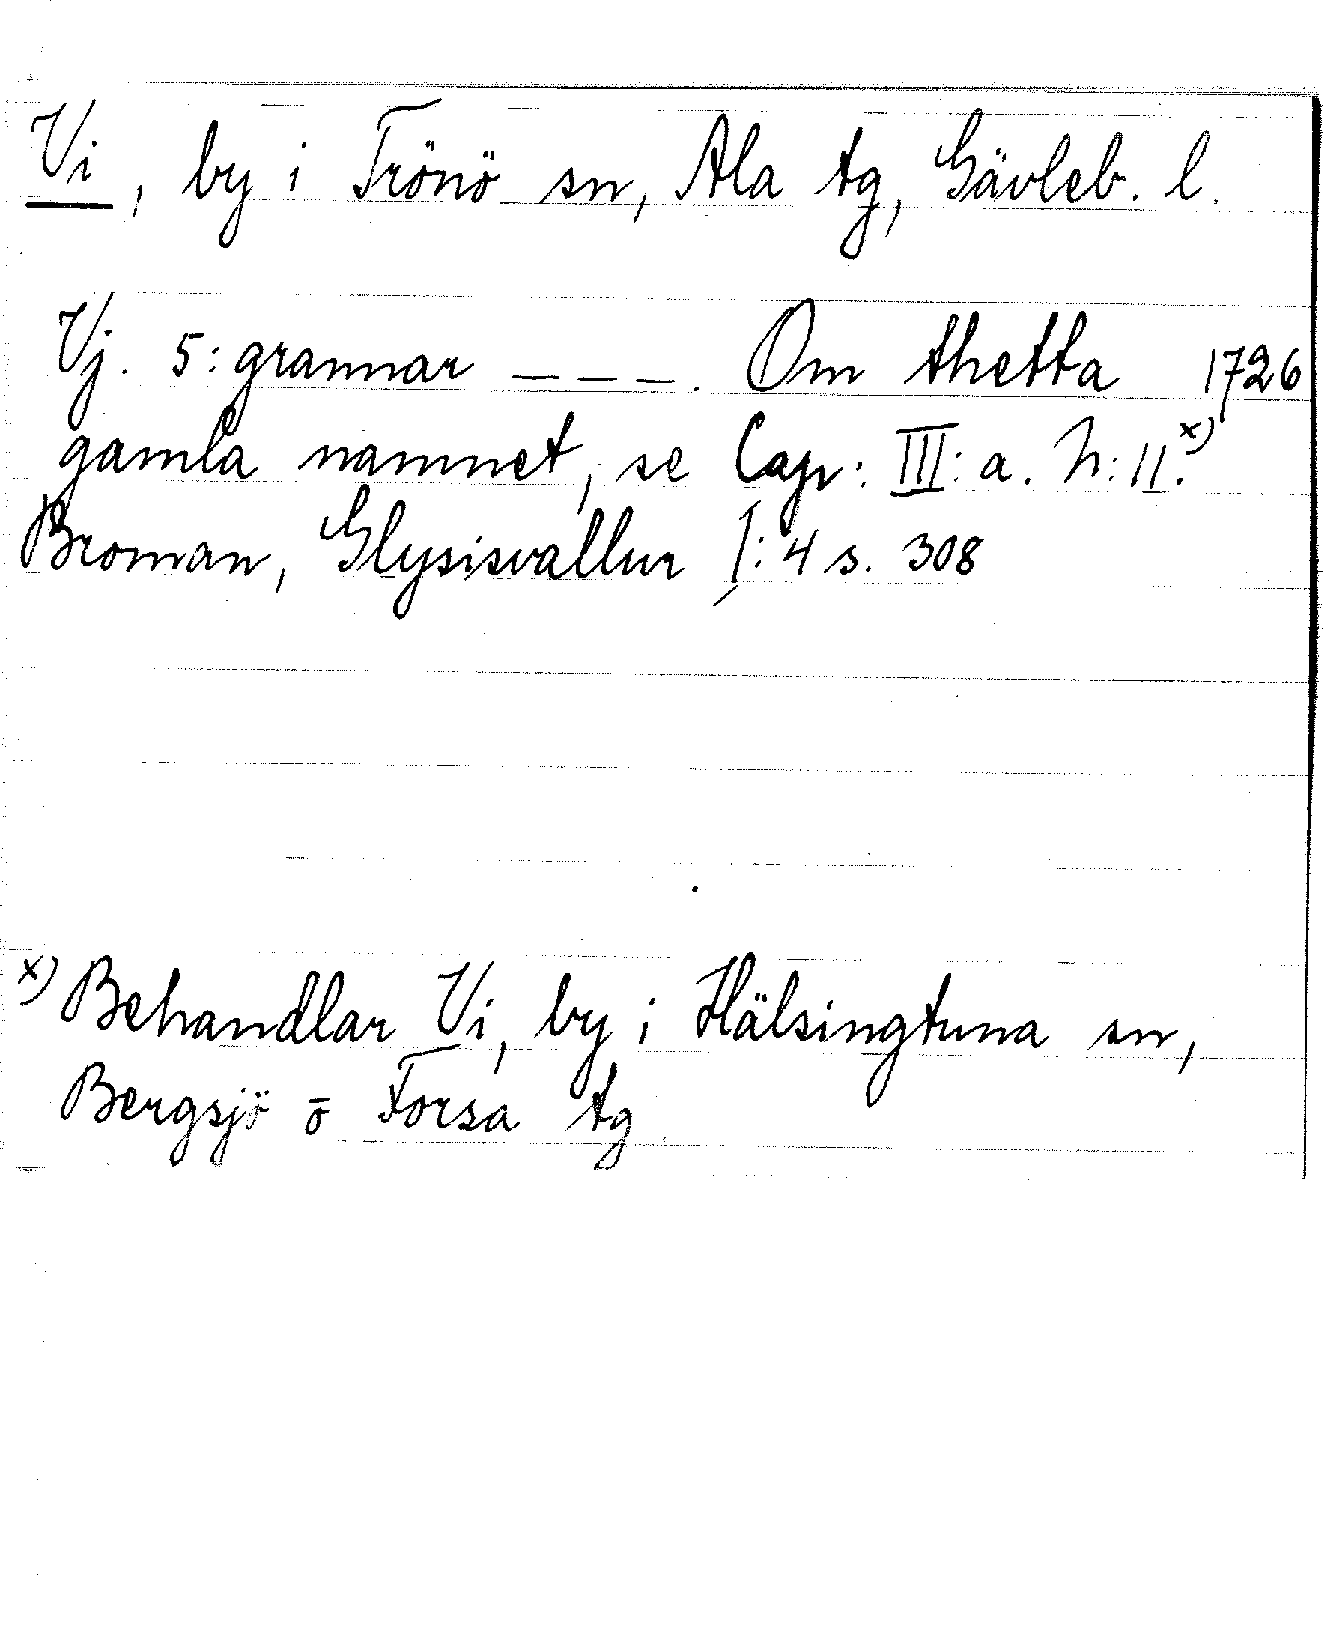 Vi, by i Trönö sn, Ala tg, Gävleb. l.
Vj. 5: grannar _ _ _. Om thetta 1726
gamla namnet, se Cap: III: a. N: 11.x)
Broman, Glysisvallur I: 4 s. 308
x) Behandlar Vi, by i Hälsingtuna sn,
Bergsjö o Forsa tg